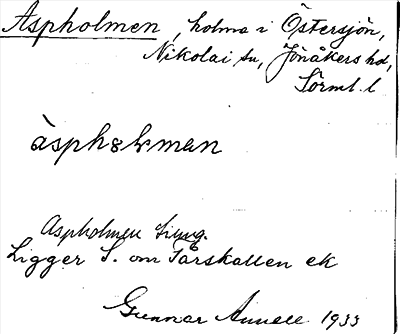 Aspholmen, holme i Östersjön,
Nikolai sn, Jönåkers hd,
Sörml. l
àsphɷlmən
Aspholmen
Ligger S. om Tärskallen ek
Gunnar Annell 1933